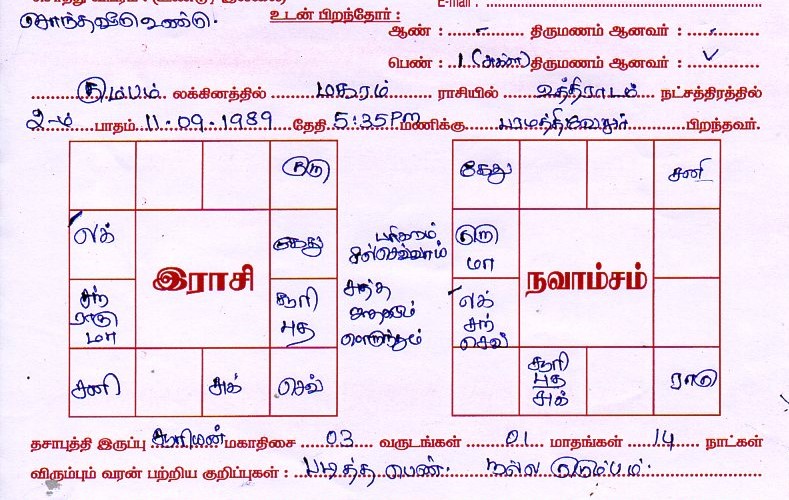 E-mail :
சொந்தவீடு உண்டு.
உடன் பிறந்தோர் :
ஆண் : - திருமணம் ஆனவர் : -
பெண் : 1 (அக்கா) திருமணம் ஆனவர் : ✓
கும்பம் லக்கினத்தில் மகரம் ராசியில் உத்திராடம் நட்சத்திரத்தில்
2-ம் பாதம் 11.09.1989 தேதி 5:35 PM மணிக்கு பரமத்திவேலூர் பிறந்தவர்.
குரு
லக்
கேது
சந் ராகு மா
சூரி புத
சனி
சுக்
செவ்
இராசி
பரிகாரம் செவ்வாய்
சுத்த ஜாதகம் பொருந்தும்
கேது
சனி
குரு மா
லக் சந் செவ்
சூரி புத சுக்
ராகு
நவாம்சம்
தசாபுத்தி இருப்பு சூரியன் மகாதிசை 03 வருடங்கள் 01 மாதங்கள் 14 நாட்கள்
விரும்பும் வரன் பற்றிய குறிப்புகள் : படித்த பெண். நல்ல குடும்பம்.